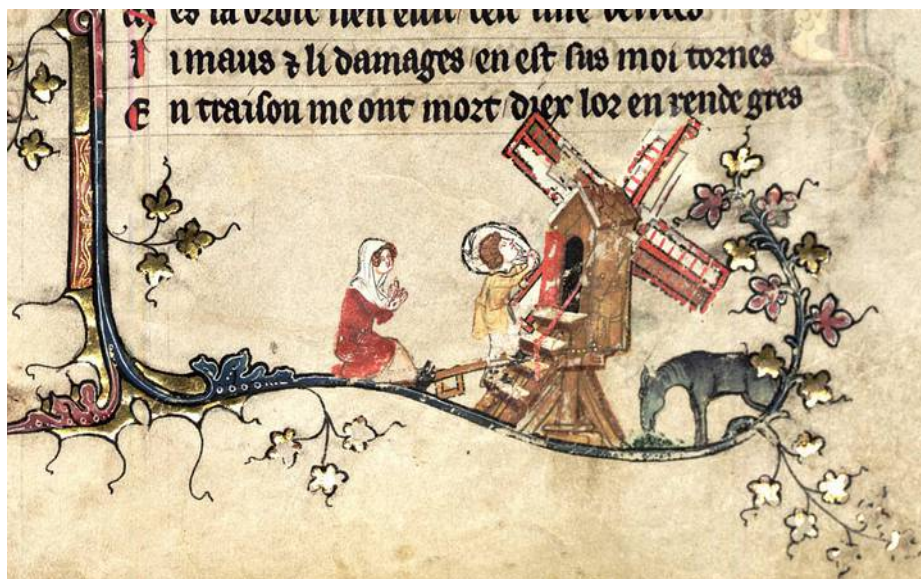 es la droie
I i maus ⁊ li damages en est sus moi tornes
E n traison me ont mort diex lor en rende gres